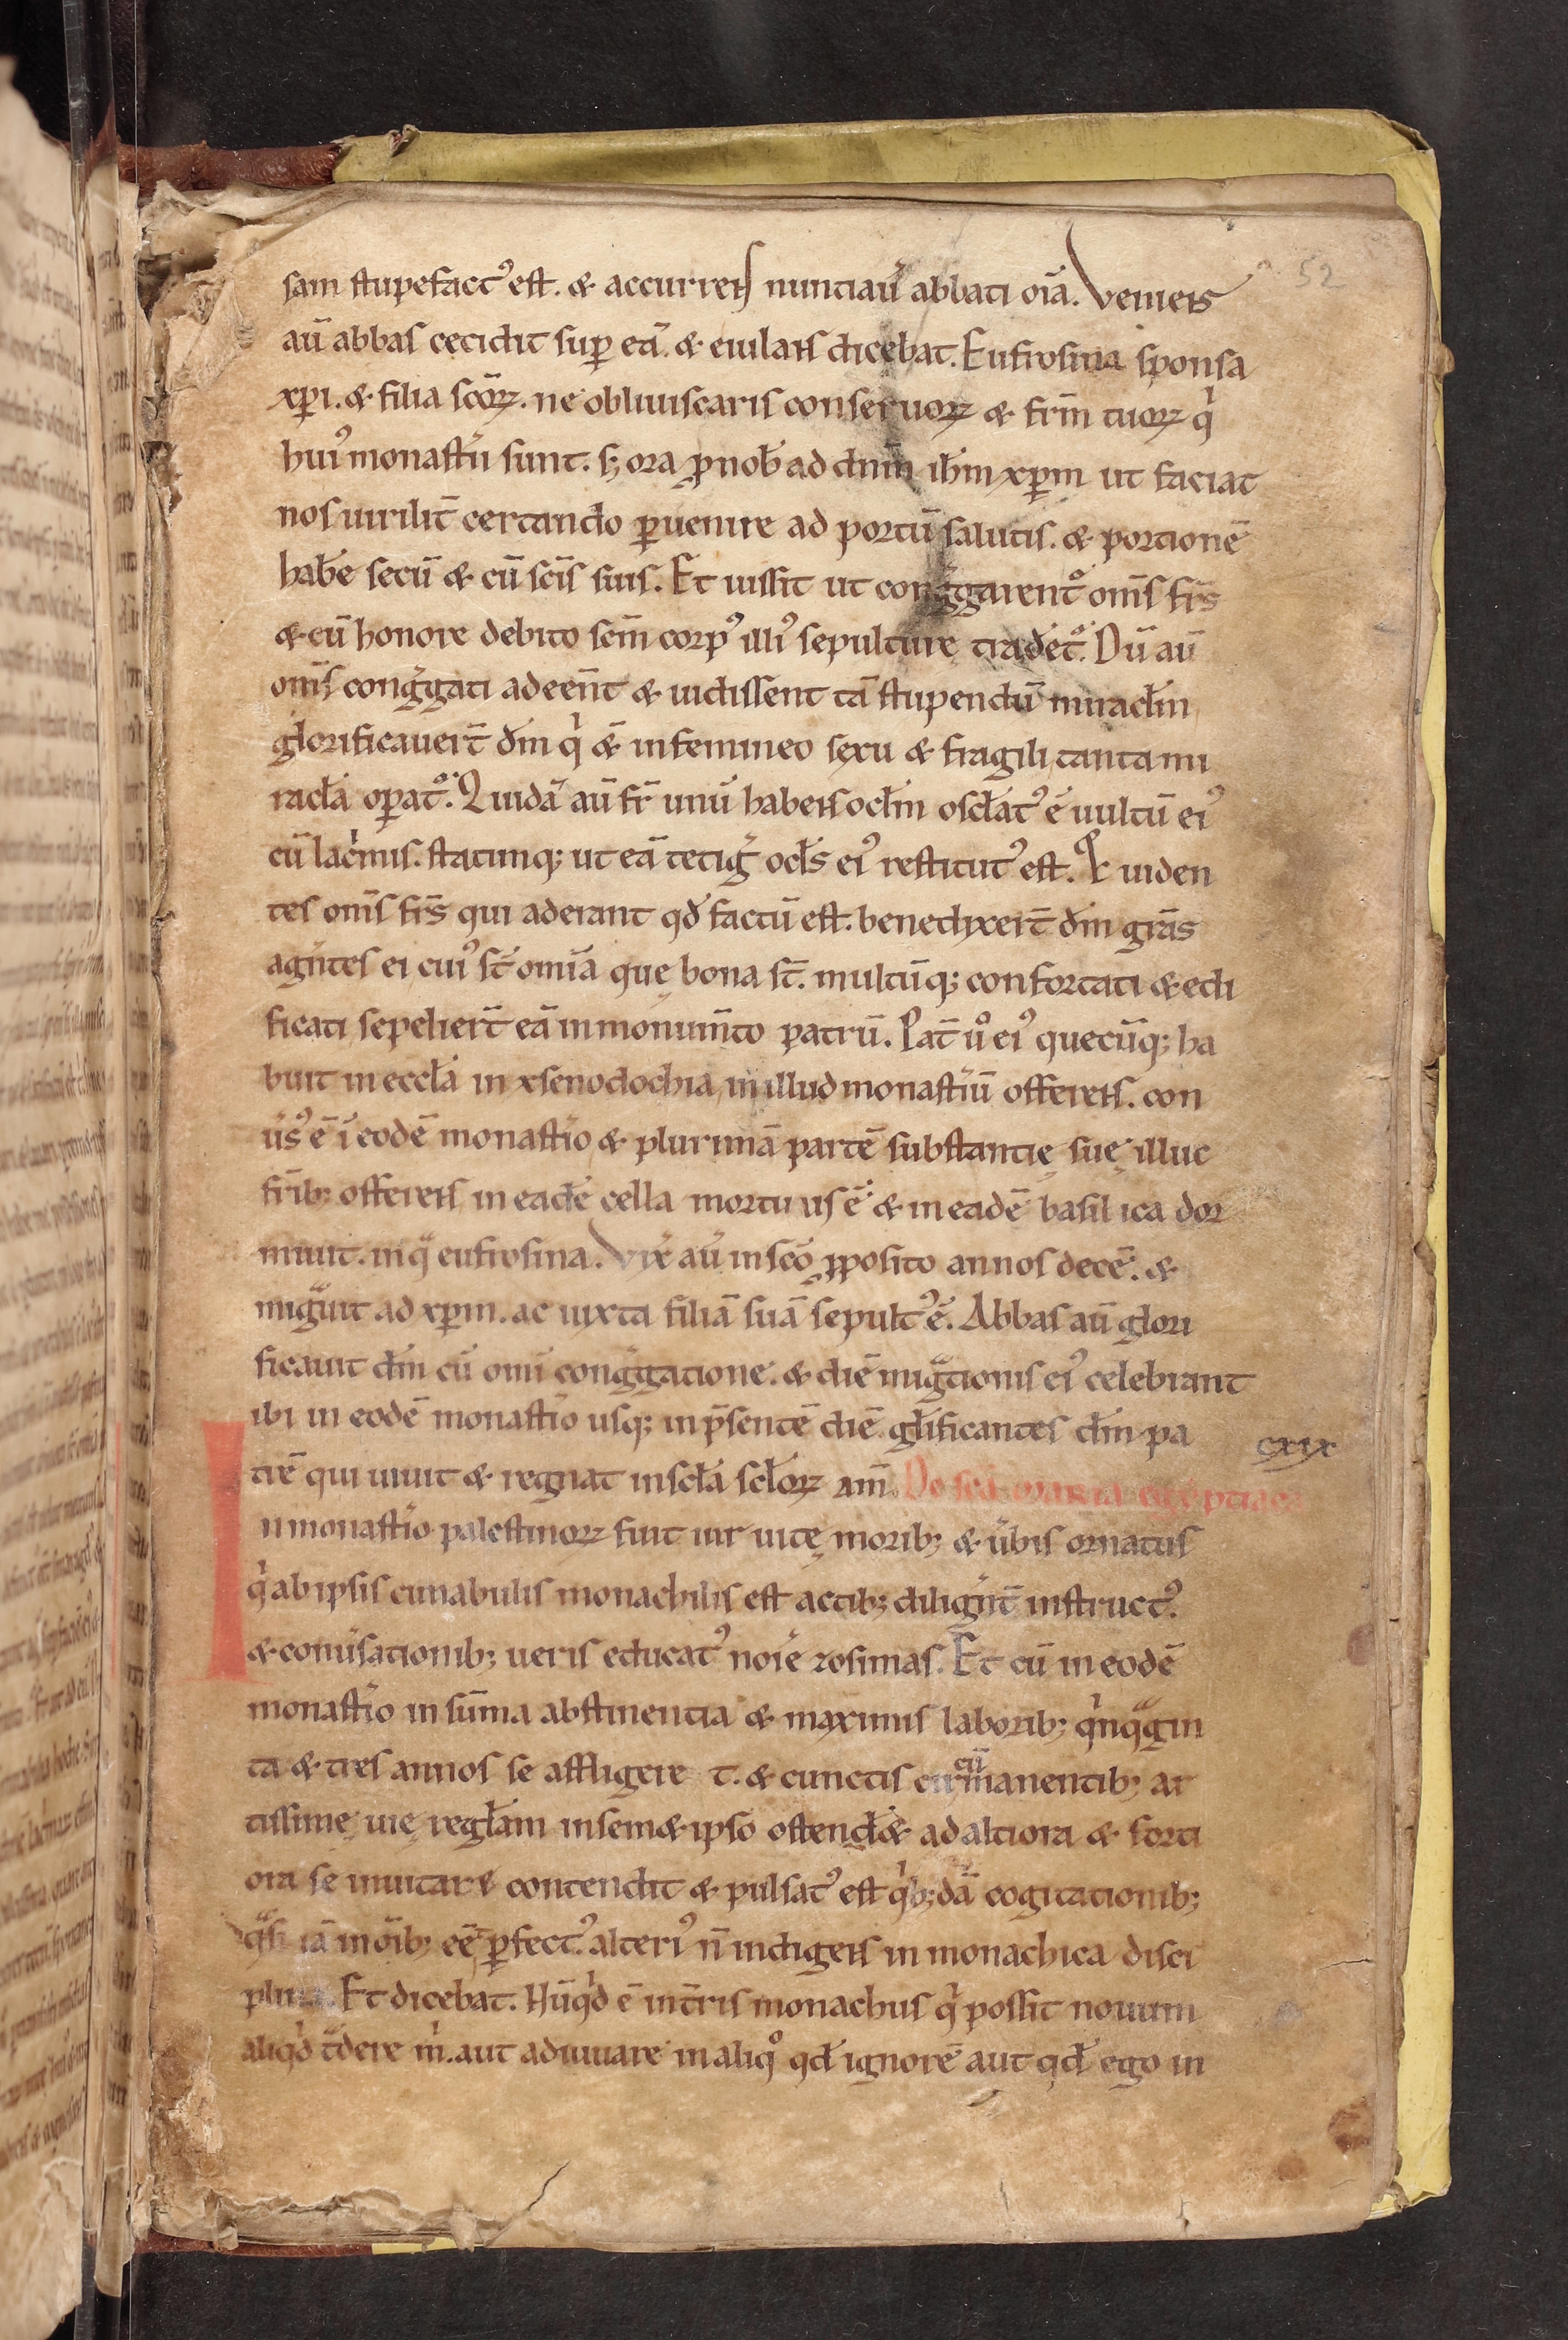 52
sam stupefact᾽ est. & accurrens nuntiaū abbati oīa. Veniens
aū abbas cecidit sup̱ eā. & eiulans dicebat. Eufrosina sponsa
xp̄i. & filia scōꝝ. ne obliuiscaris conseruoꝝ & frm̄ tuoꝝ qͥ
hui᾽ monastii sunt. sꝫ ora ꝓ nob̄ ad dnm̄ ihm̄ xp̄m ut faciat
nos uirilit̄ certando ꝑuenire ad portū salutis. & portionē
hab̄e secū & cū scīs suis. Et iussit ut congͥgarent᾽ om̄s frs̄
& cū honore debito sem̄ corp᾽ illi᾽ sepulture tradet᾽. Dū aū
om̄s congͥgati adeēn̄t & uidissent tā stupendū miraclm̄
glorificauer̄t dm̄ qͥ &̄ in femineo sexu & fragili tanta mi
racła oꝑat᾽. Quidā aū fr̄ unū habens oclm̄ oscłat᾽ ē uultū ei᾽
cū lacͥmis. statimqꝫ ut eā tetiḡ ocls̄ ei᾽ restitut᾽ est. & uiden
tes om̄s frs̄ qui aderant qd̄ factū est. benedixer̄t dm̄ grās
agntes ei cui᾽ st̄ omīa quę bona st̄. multūqꝫ confortati & edi
ficati sepelier̄t eā in monum̄to patrū. Pat̄ uͦ ei᾽ quecūqꝫ ha
buit in eccłā in xsenodochia, in illud monastiū offerens. con
us᾽ ē ī eodē monastio & plurimā partē substantię suę illuc
frībꝫ offerens in eadē cella mortuus ē. & in eadē basilica dor
miuit. in qͣ eufrosina. Vix̄ aū in scō ꝓposito annos decē. &
migͣuit ad xp̄m. ac iuxta filiā suā sepult᾽ ē. Abbas aū glori
ficauit dm̄ cū omī congͥgatione. & diē migͣtionis ei᾽ celebrant
ibi in eodē monastio usqꝫ in p̄sentē diē glificantes dm̄ pa
cxix
trē qui uiuit & regnat in scła scłoꝝ am̄. De scā maria egēptiaca
In monastio palestinoꝝ fuit uir uitę moribꝫ & ūbis ornatus
qͥ ab ipsis cunabulis monachilis est actibꝫ diligͥnt̄ instruct᾽.
& conūsationibꝫ ueris educat᾽ noīe zosimas. Et cū in eodē
monastio in sūma abstinentia & maximis laboribꝫ qͥnqͣgin
ta & tres annos se affligere t. & cunctis cū manentibꝫ ar
tissime uię regłam in sem&ipso ostend& ad altiora & forti
ora se inuitare contendit & pulsat᾽ est qͥbꝫdā cogitationibꝫ
qͣsi iā in oībꝫ eē̄ ꝑfect᾽. alteri᾽ n̄ indigens in monachica disci
plina. Et dicebat. Nūqͥd ē in tr̄is monachus qͥ possit nouum
aliqͥd tͣdere mͥ. aut adiuuare in aliqͦ qd̄ ignorē aut qd̄ ego in